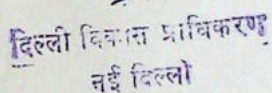 दिल्ली विकास प्राधिकरण
नई दिल्ली